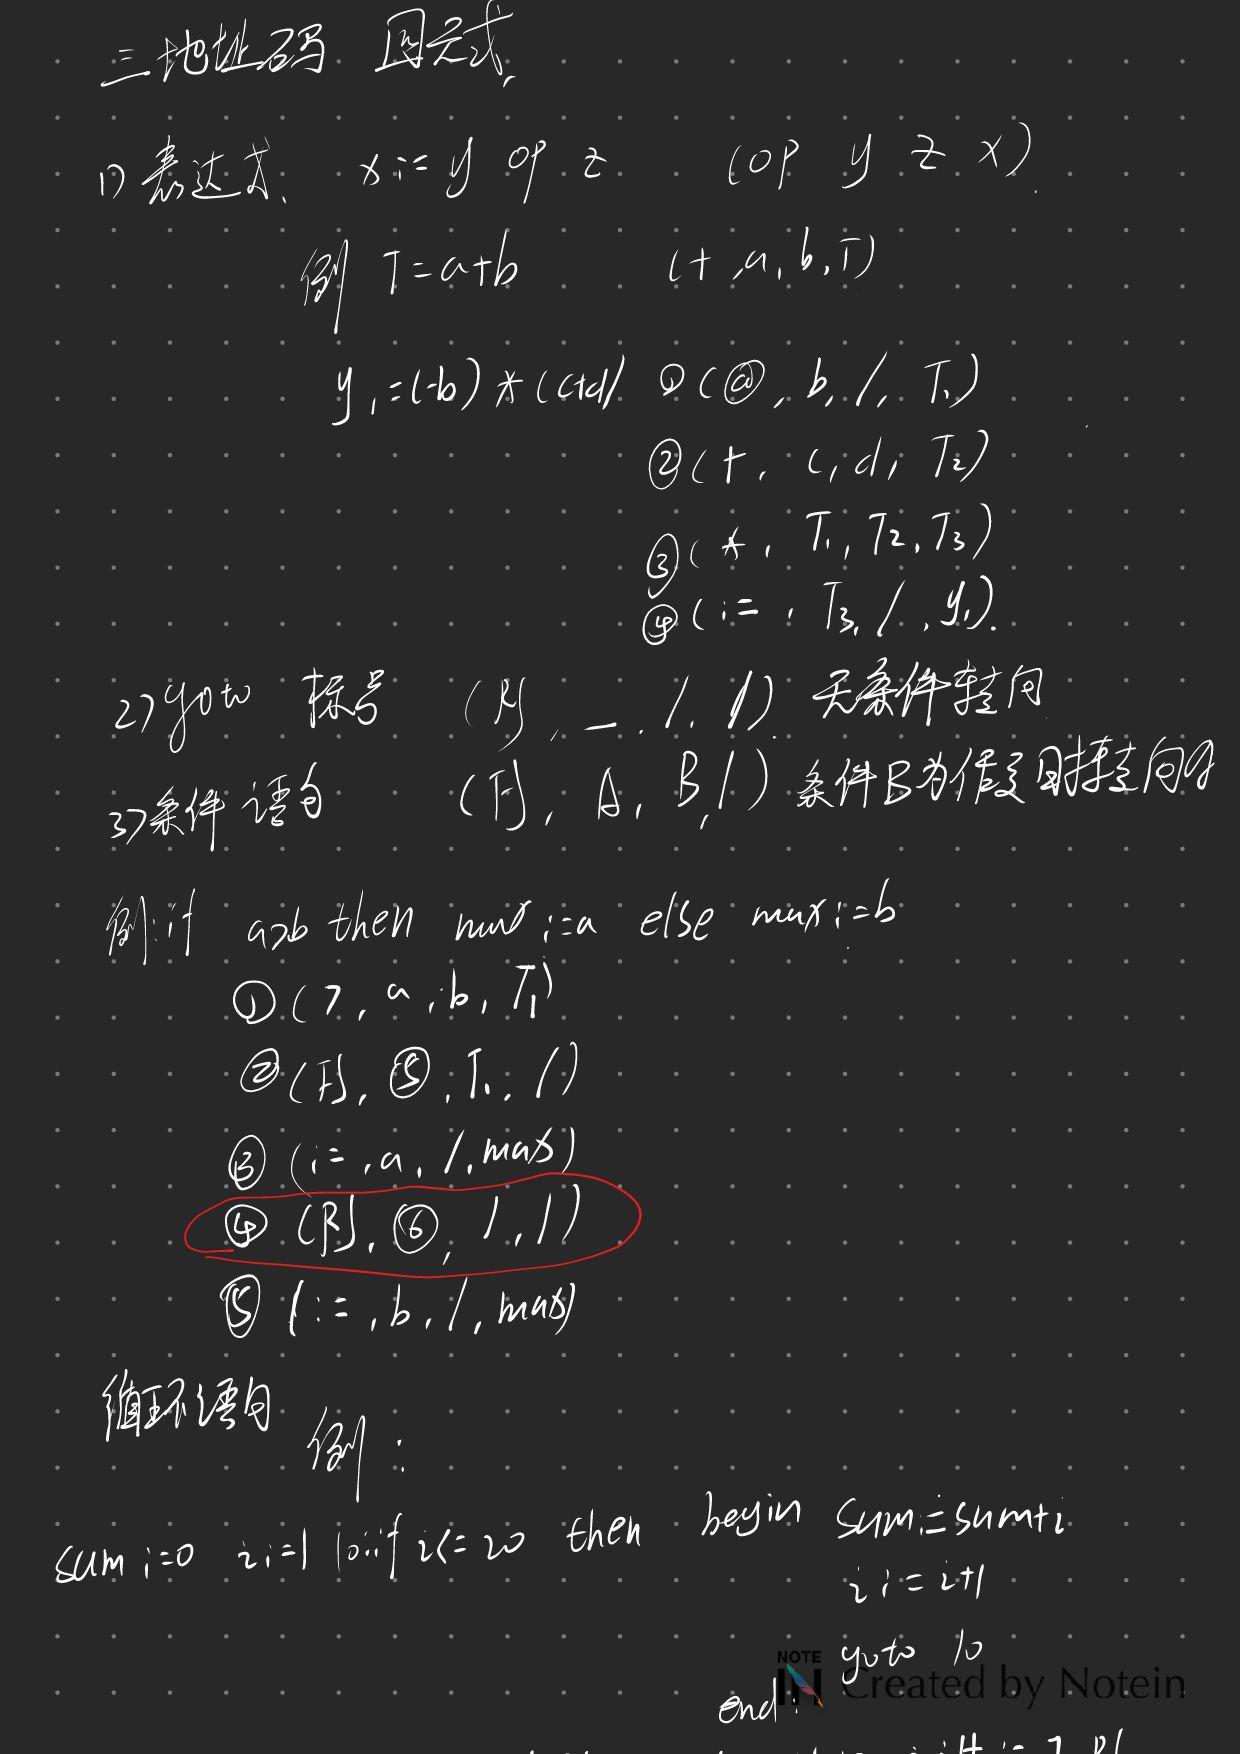 三地址码 四元式
1) 表达式. x:=y op z (op y z x)
例 T=a+b (+,a,b,T)
y:=(-b)*(c+d) ①(@, b, /, T₁)
②(+, c, d, T₂)
③(*, T₁, T₂, T₃)
④(:=, T₃, /, y)
2) goto 标号 (RJ, _, /, /) 无条件转向
3) 条件语句 (FJ, A, B, /) 条件B为假是时转向A
例:if a>b then max:=a else max:=b
①(>, a, b, T₁)
②(FJ, ⑤, T₁, /)
③(:=, a, /, max)
④(RJ, ⑥, /, /)
⑤(:=, b, /, max)
循环语句
例:
sum:=0 i:=1 10:if i<=20 then begin sum:=sum+i
i:=i+1
goto 10
end:
NOTE IN Created by Notein